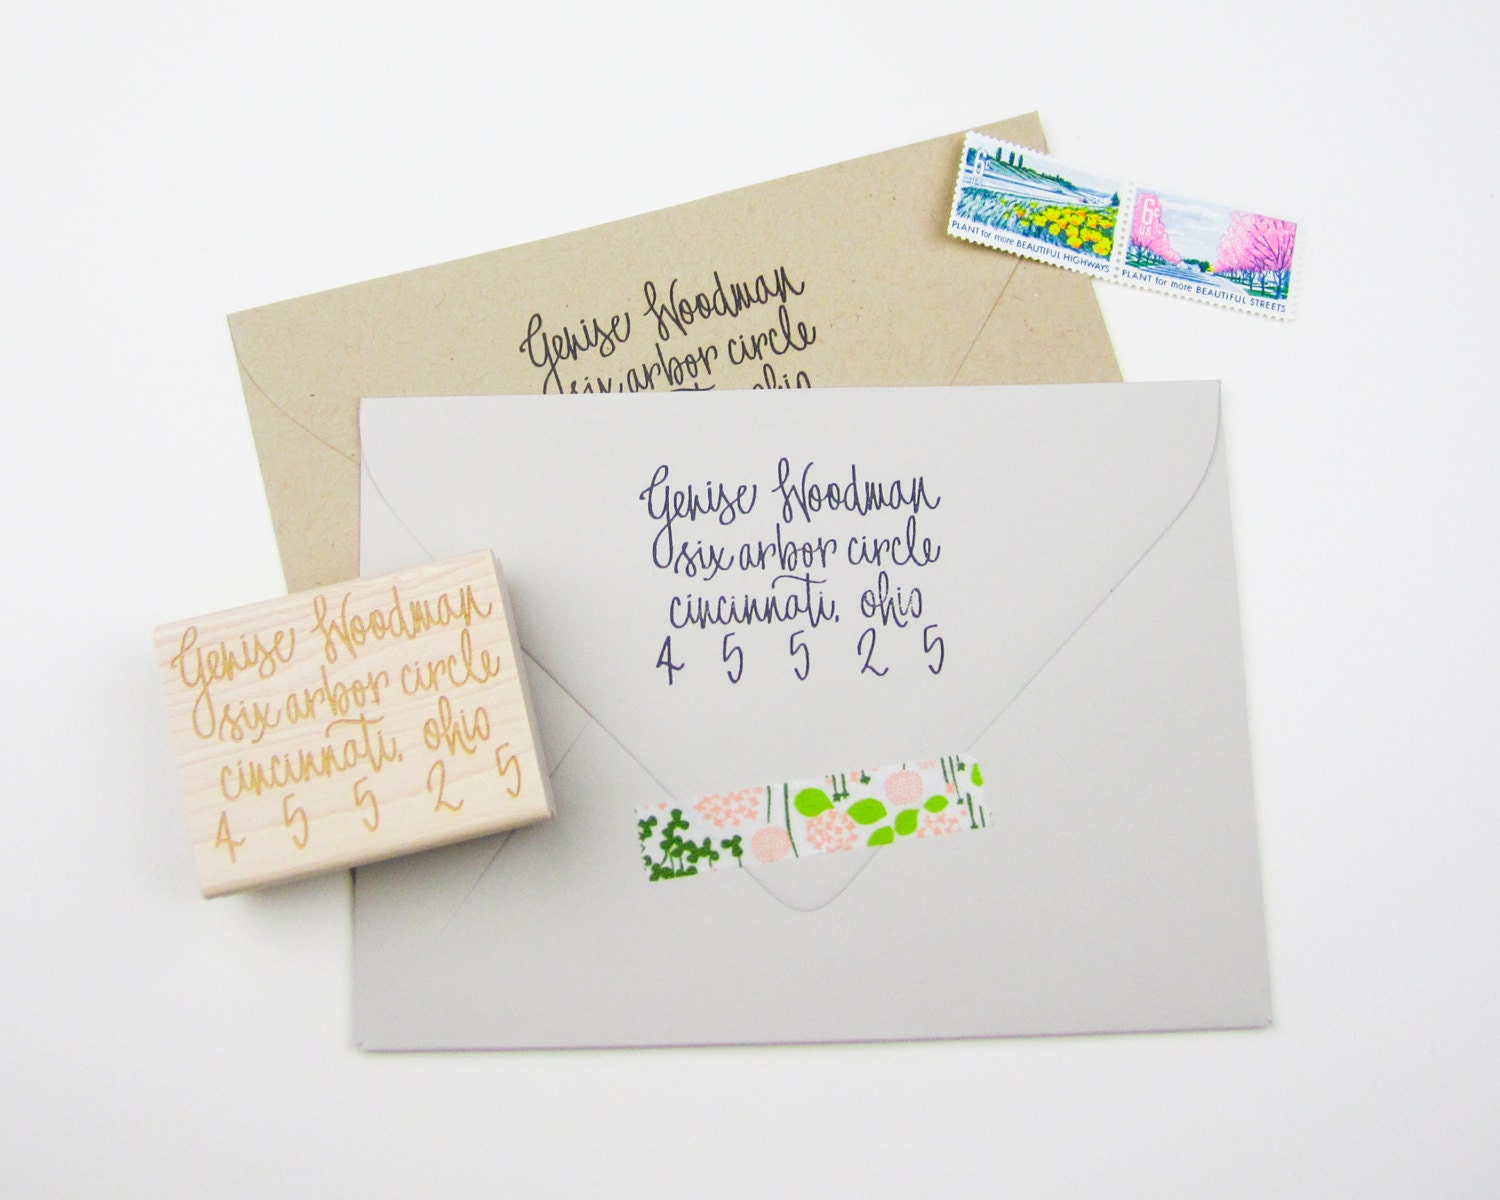 Genise Woodman
six arbor circle
ohio
6c
PLANT for more BEAUTIFUL HIGHWAYS
6c
US
PLANT for more BEAUTIFUL STREETS
Genise Woodman
six arbor circle
cincinnati, ohio
4 5 5 2 5
Genise Woodman
six arbor circle
cincinnati, ohio
4 5 5 2 5